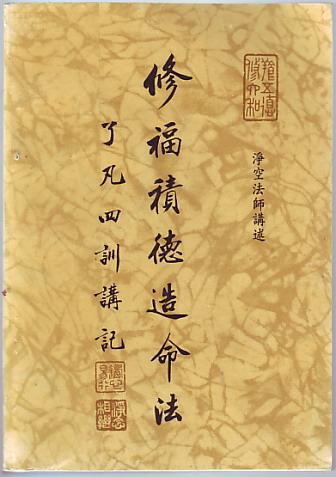 淨空法師講述
修福積德造命法
了凡四訓講記
淨念
相繼